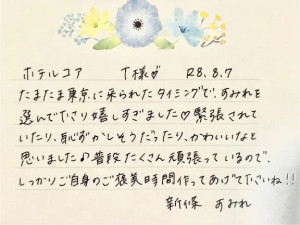 ホテルコア T様♡ R8.8.7
たまたま東京に来られたタイミングで、すみれを
選んで下さり嬉しすぎました♡緊張されて
いたり、恥ずかしそうだったり、かわいいなと
思いました♪普段たくさん頑張っているので、
しっかりご自身のご褒美時間作ってあげて下さいね!!
新條 すみれ